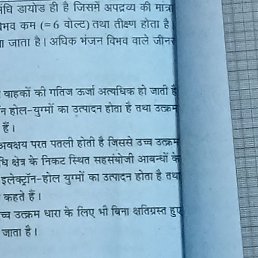 धि डायोड ही है जिसमें अपद्रव्य की मात्रा
भव कम (= 6 वोल्ट) तथा तीक्ष्ण होता है
ा जाता है। अधिक भंजन विभव वाले जीनर
वाहकों की गतिज ऊर्जा अत्यधिक हो जाती है
न होल-युग्मों का उत्पादन होता है तथा उत्क्रम
हैं।
अवक्षय परत पतली होती है जिससे उच्च उत्क्रम
धि क्षेत्र के निकट स्थित सहसंयोजी आबन्धों के
इलेक्ट्रॉन-होल युग्मों का उत्पादन होता है तथा
कहते हैं।
च्च उत्क्रम धारा के लिए भी बिना क्षतिग्रस्त हुए
जाता है।